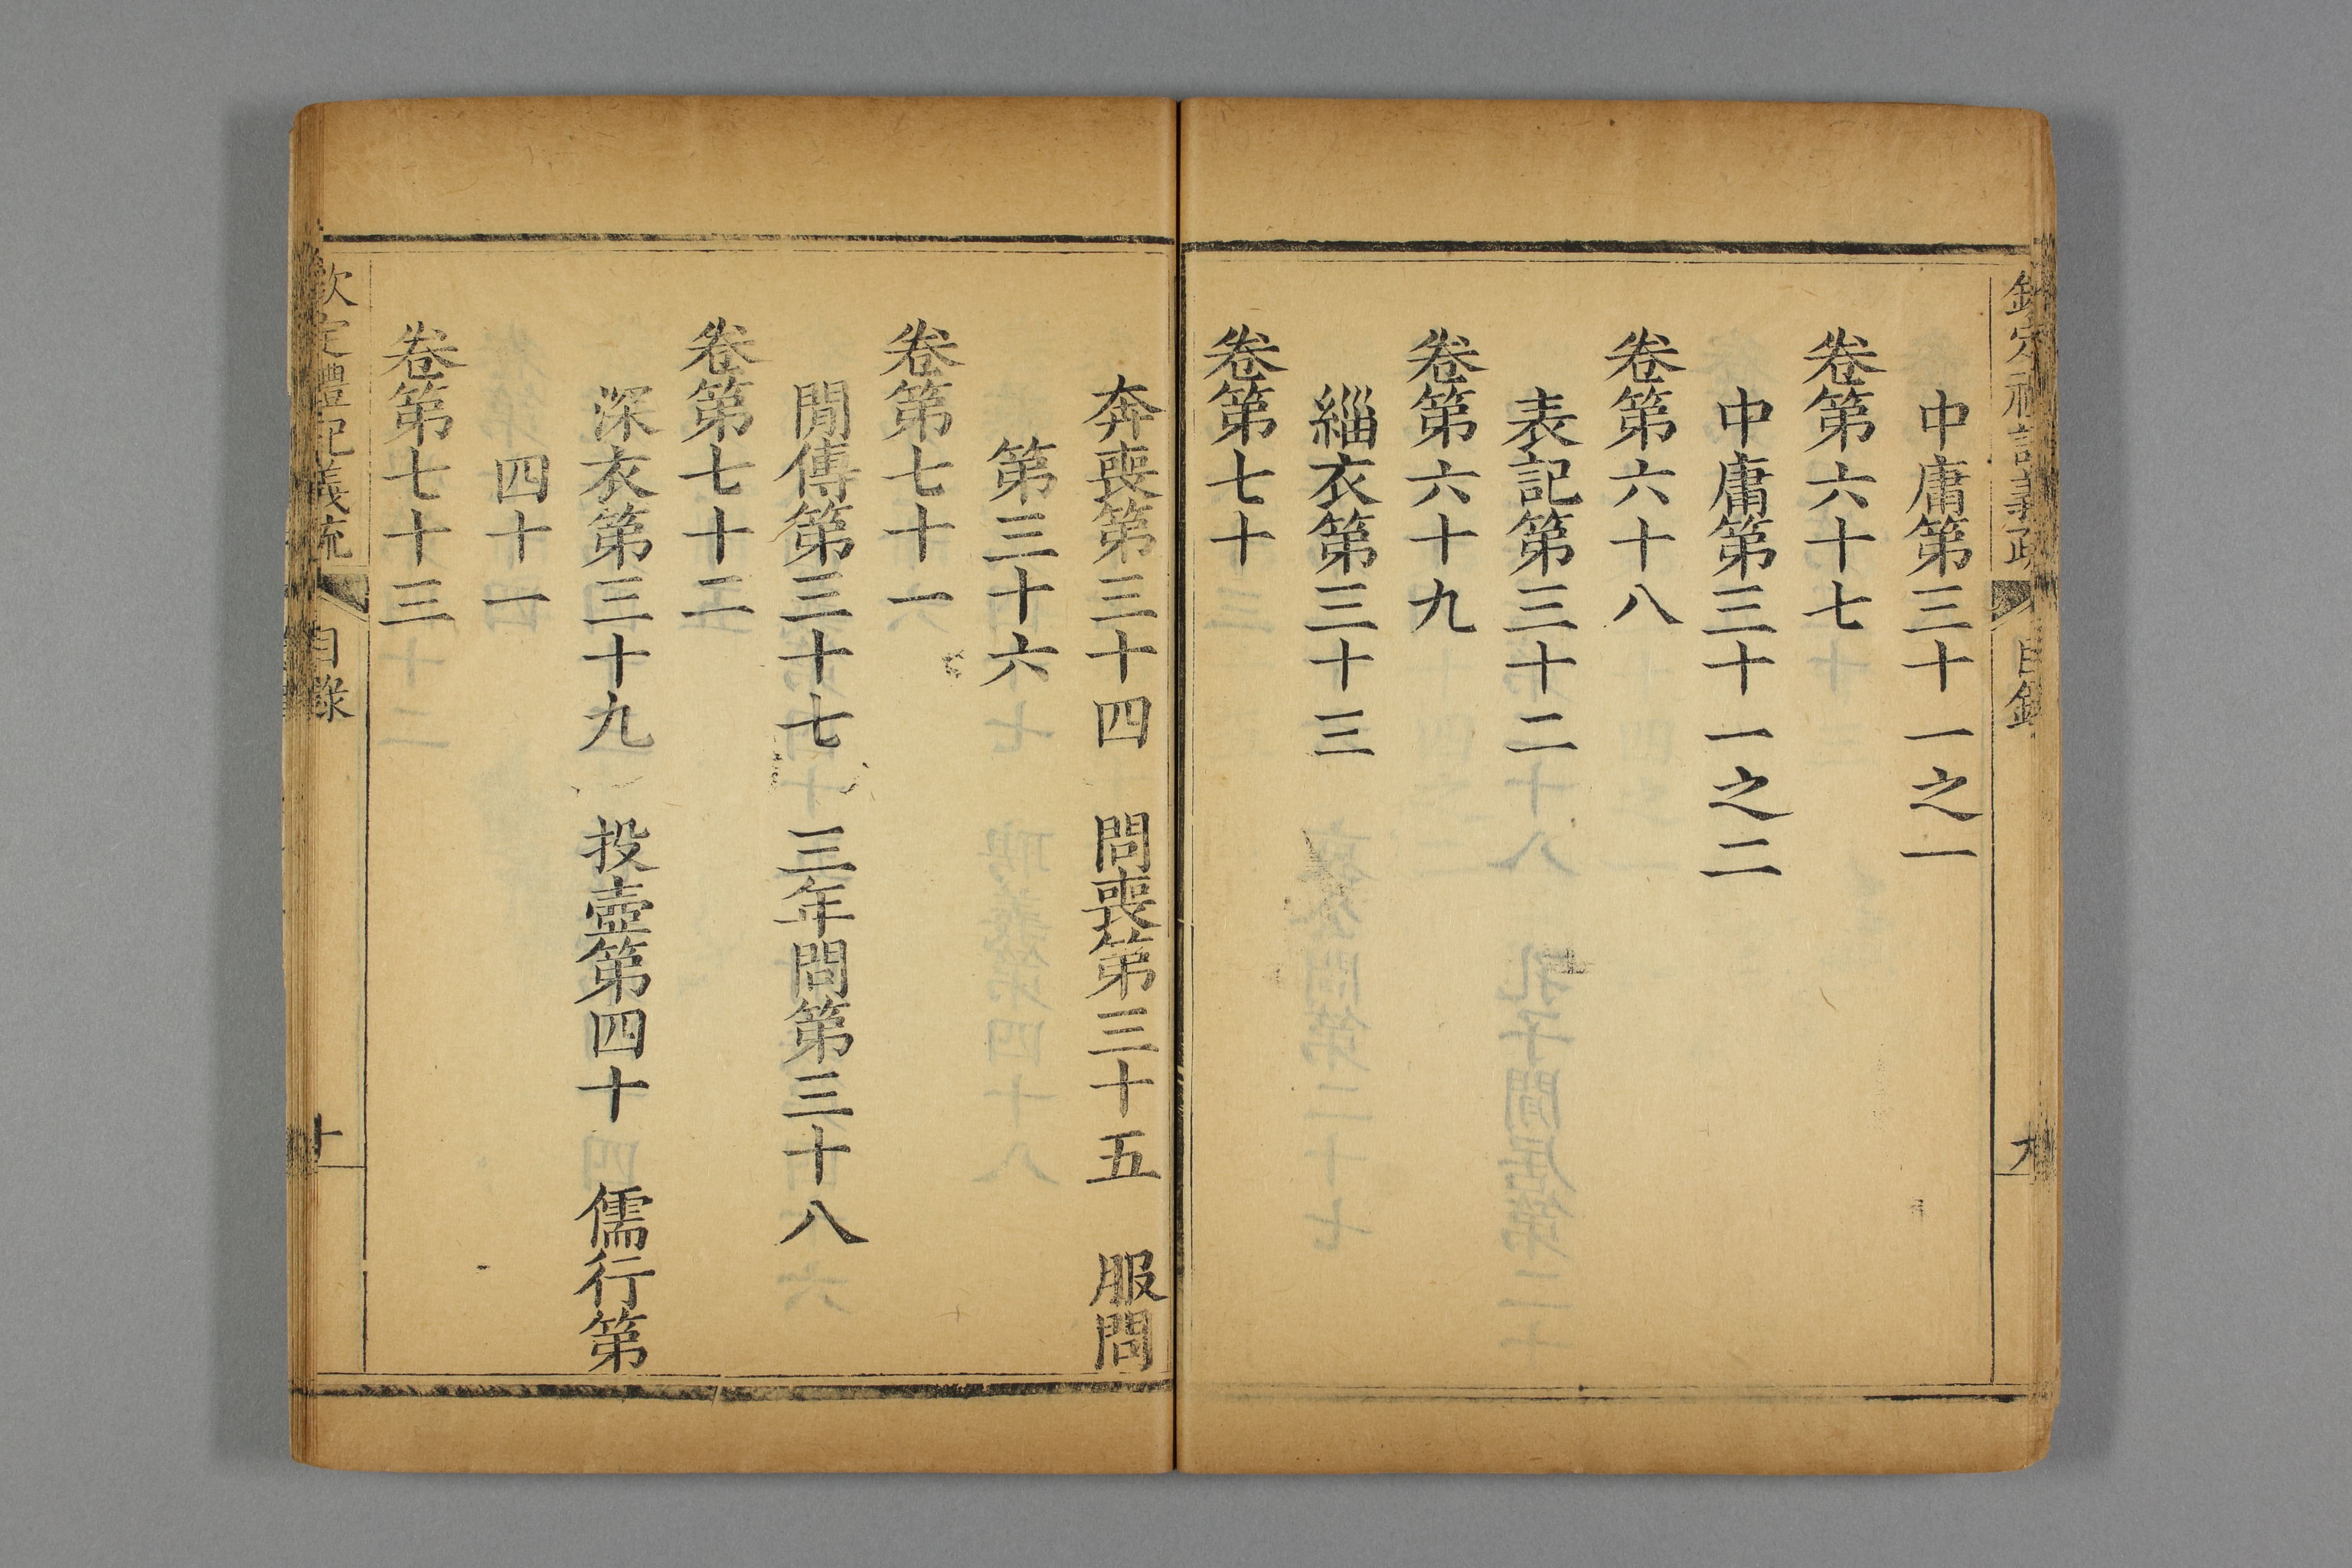 欽定禮記義疏 目錄 九
中庸第三十一之一
卷第六十七
中庸第三十一之二
卷第六十八
表記第三十二
卷第六十九
緇衣第三十三
卷第七十
奔喪第三十四 問喪第三十五 服問
第三十六
卷第七十一
閒傳第三十七 三年問第三十八
卷第七十二
深衣第三十九 投壺第四十 儒行第
四十一
卷第七十三
欽定禮記義疏 目錄 十